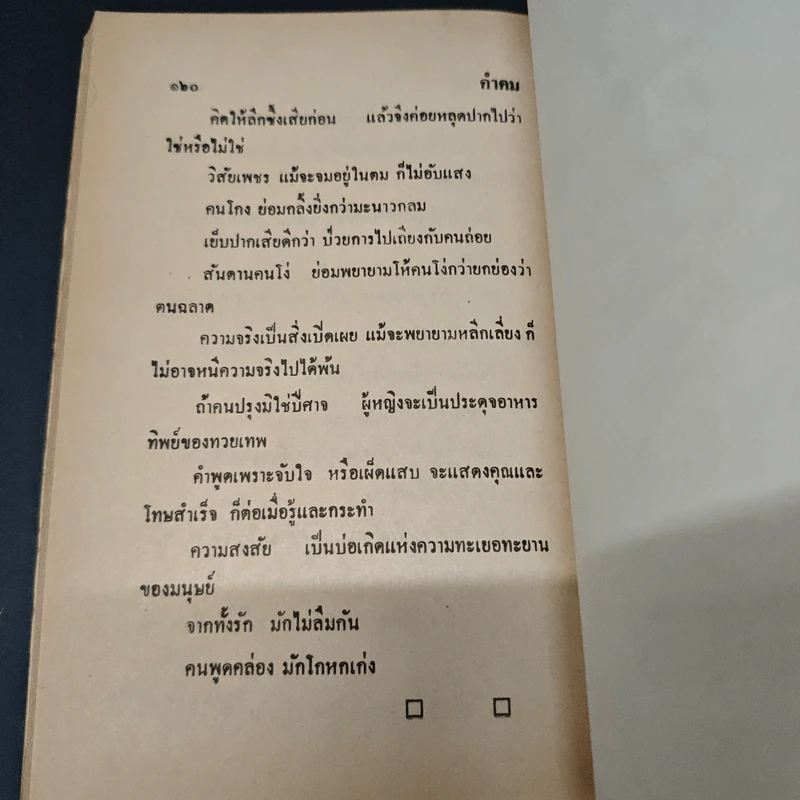 ๑๒๐ คำคม
คิดให้ลึกซึ้งเสียก่อน แล้วจึงค่อยหลุดปากไปว่า
ใช่หรือไม่ใช่
วิสัยเพชร แม้จะจมอยู่ในตม ก็ไม่อับแสง
คนโกง ย่อมกลิ้งยิ่งกว่ามะนาวกลม
เย็บปากเสียดีกว่า ป่วยการไปเถียงกับคนถ่อย
สันดานคนโง่ ย่อมพยายามโห้คนโง่กว่ายกย่องว่า
ตนฉลาด
ความจริงเป็นสิ่งเปิดเผย แม้จะพยายามหลีกเลี่ยง ก็
ไม่อาจหนีความจริงไปได้พ้น
ถ้าคนปรุงมิใช่ปีศาจ ผู้หญิงจะเป็นประดุจอาหาร
ทิพย์ของทวยเทพ
คำพูดเพราะจับใจ หรือเผ็ดแสบ จะแสดงคุณและ
โทษสำเร็จ ก็ต่อเมื่อรู้และกระทำ
ความสงสัย เป็นบ่อเกิดแห่งความทะเยอทะยาน
ของมนุษย์
จากทั้งรัก มักไม่ลืมกัน
คนพูดคล่อง มักโกหกเก่ง